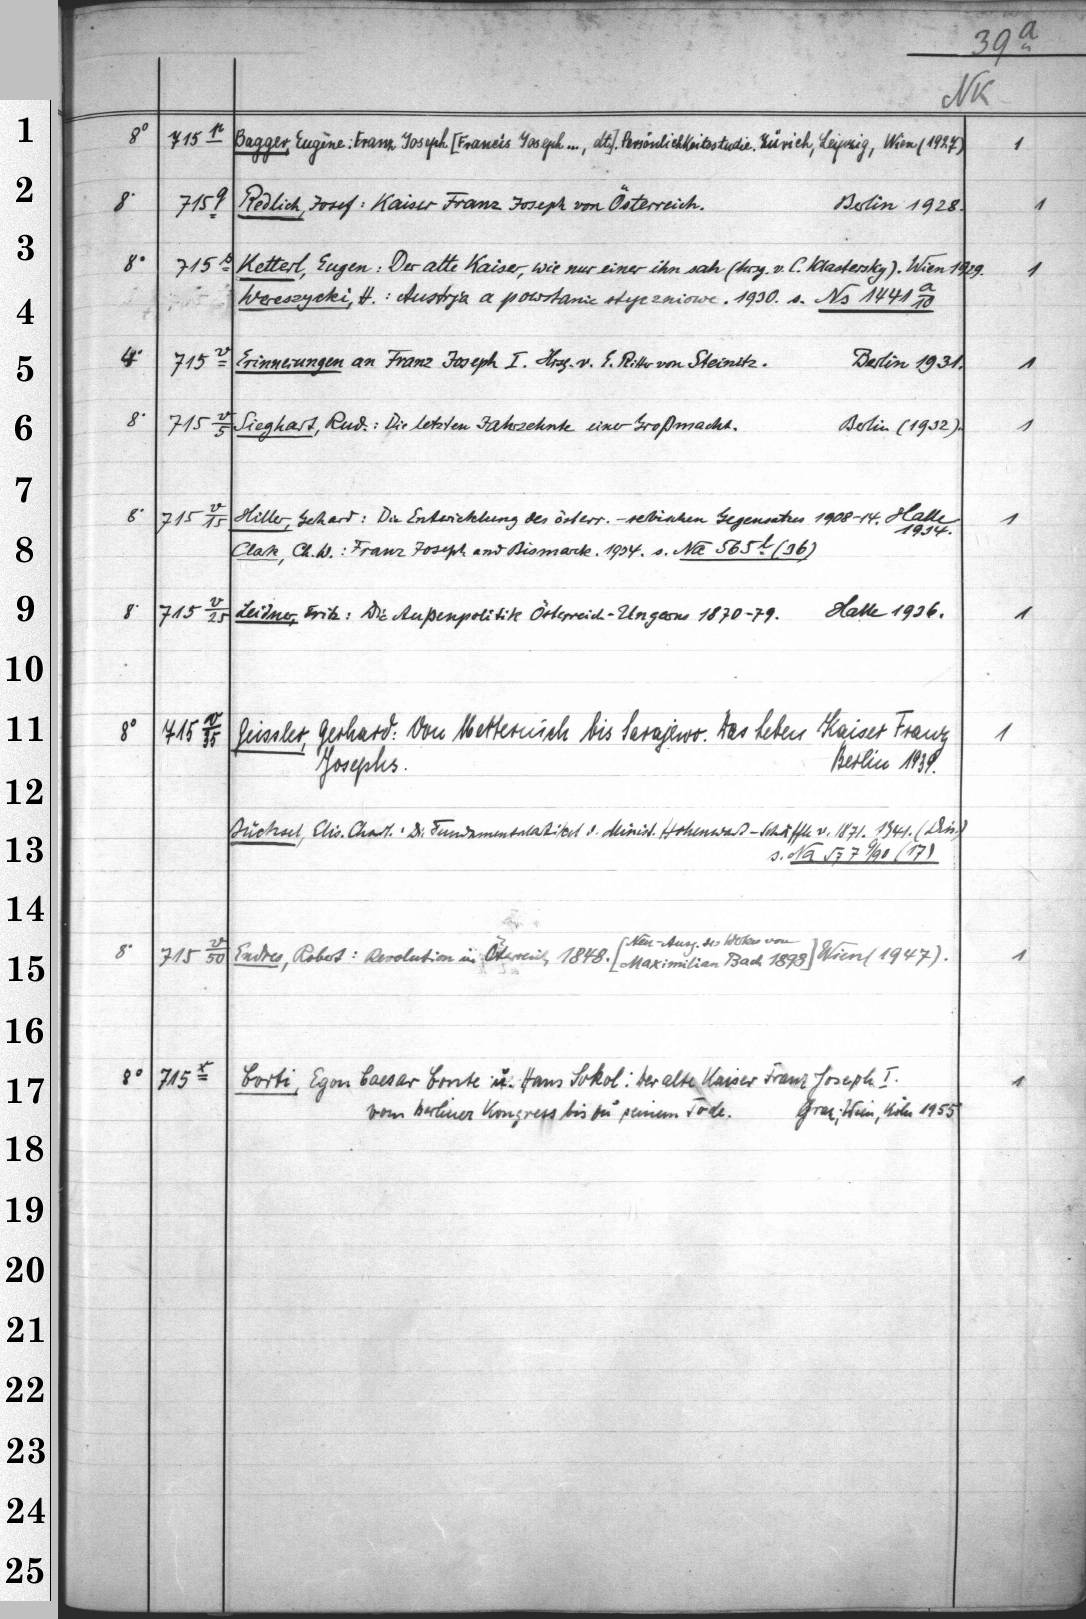 39 a
NK
1
8° 715 Bagger, Eugène: Franz Joseph [Francis Joseph ..., dt.]. Persönlichkeitsstudie. Zürich, Leipzig, Wien (1927) 1
2
8° 715 q Redlich, Josef: Kaiser Franz Joseph von Österreich. Berlin 1928. 1
3
8° 715 s Ketterl, Eugen: Der alte Kaiser, wie nur einer ihn sah (hrsg. v. C. Klastersky). Wien 1929. 1
4
Wereszycki, H.: Austrja a powstanie styczniowe. 1930. s. Ns 1441 a/10
5
4° 715 v Erinnerungen an Franz Joseph I. Hrsg. v. E. Ritter von Steinitz. Berlin 1931. 1
6
8° 715 v/5 Sieghart, Rud.: Die letzten Jahrzehnte einer Großmacht. Berlin (1932). 1
7
8° 715 v/15 Hiller, Gerhard: Die Entwicklung des österr.-serbischen Gegensatzes 1908-14. Halle 1934. 1
8
Clark, Ch. W.: Franz Joseph and Bismarck. 1934. s. Na 565 (36)
9
8° 715 v/25 Leidner, Fritz: Die Außenpolitik Österreich-Ungarns 1870-79. Halle 1936. 1
10
11
8° 715 v/35 Geissler, Gerhard: Von Metternich bis Sarajewo. Das Leben Kaiser Franz 1
Josephs. Berlin 1939.
12
Büchsel, Elis. Charl.: Di. Fundamentalartikel d. Minist. Hohenwart-Schäffle v. 1871. 1941. (Diss.)
13
s. Na 57 9/90 (17)
14
15
8° 715 v/50 Endres, Robert: Revolution in Österreich 1848. [Neu-Ausg. des Werkes von Maximilian Bach 1898] Wien (1947). 1
16
17
8° 715 x Corti, Egon Caesar Conte u. Hans Sokol: Der alte Kaiser Franz Joseph I. 1
vom Berliner Kongress bis zu seinem Tode. Graz, Wien, Köln 1955
18
19
20
21
22
23
24
25